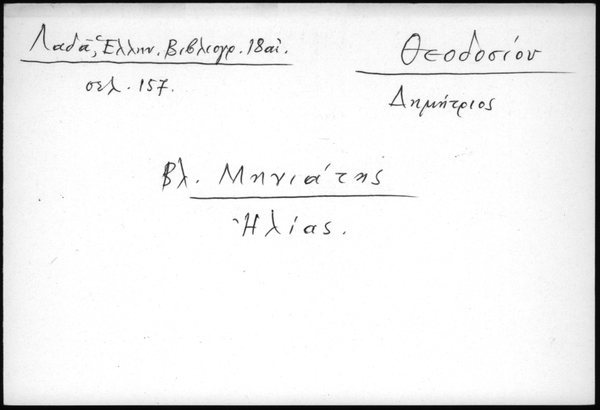 Λαδᾶ, Ἑλλην. Βιβλιογρ. 18αἰ.
σελ. 157.
Θεοδοσίου
Δημήτριος
Βλ. Μηνιάτης
Ἠλίας.